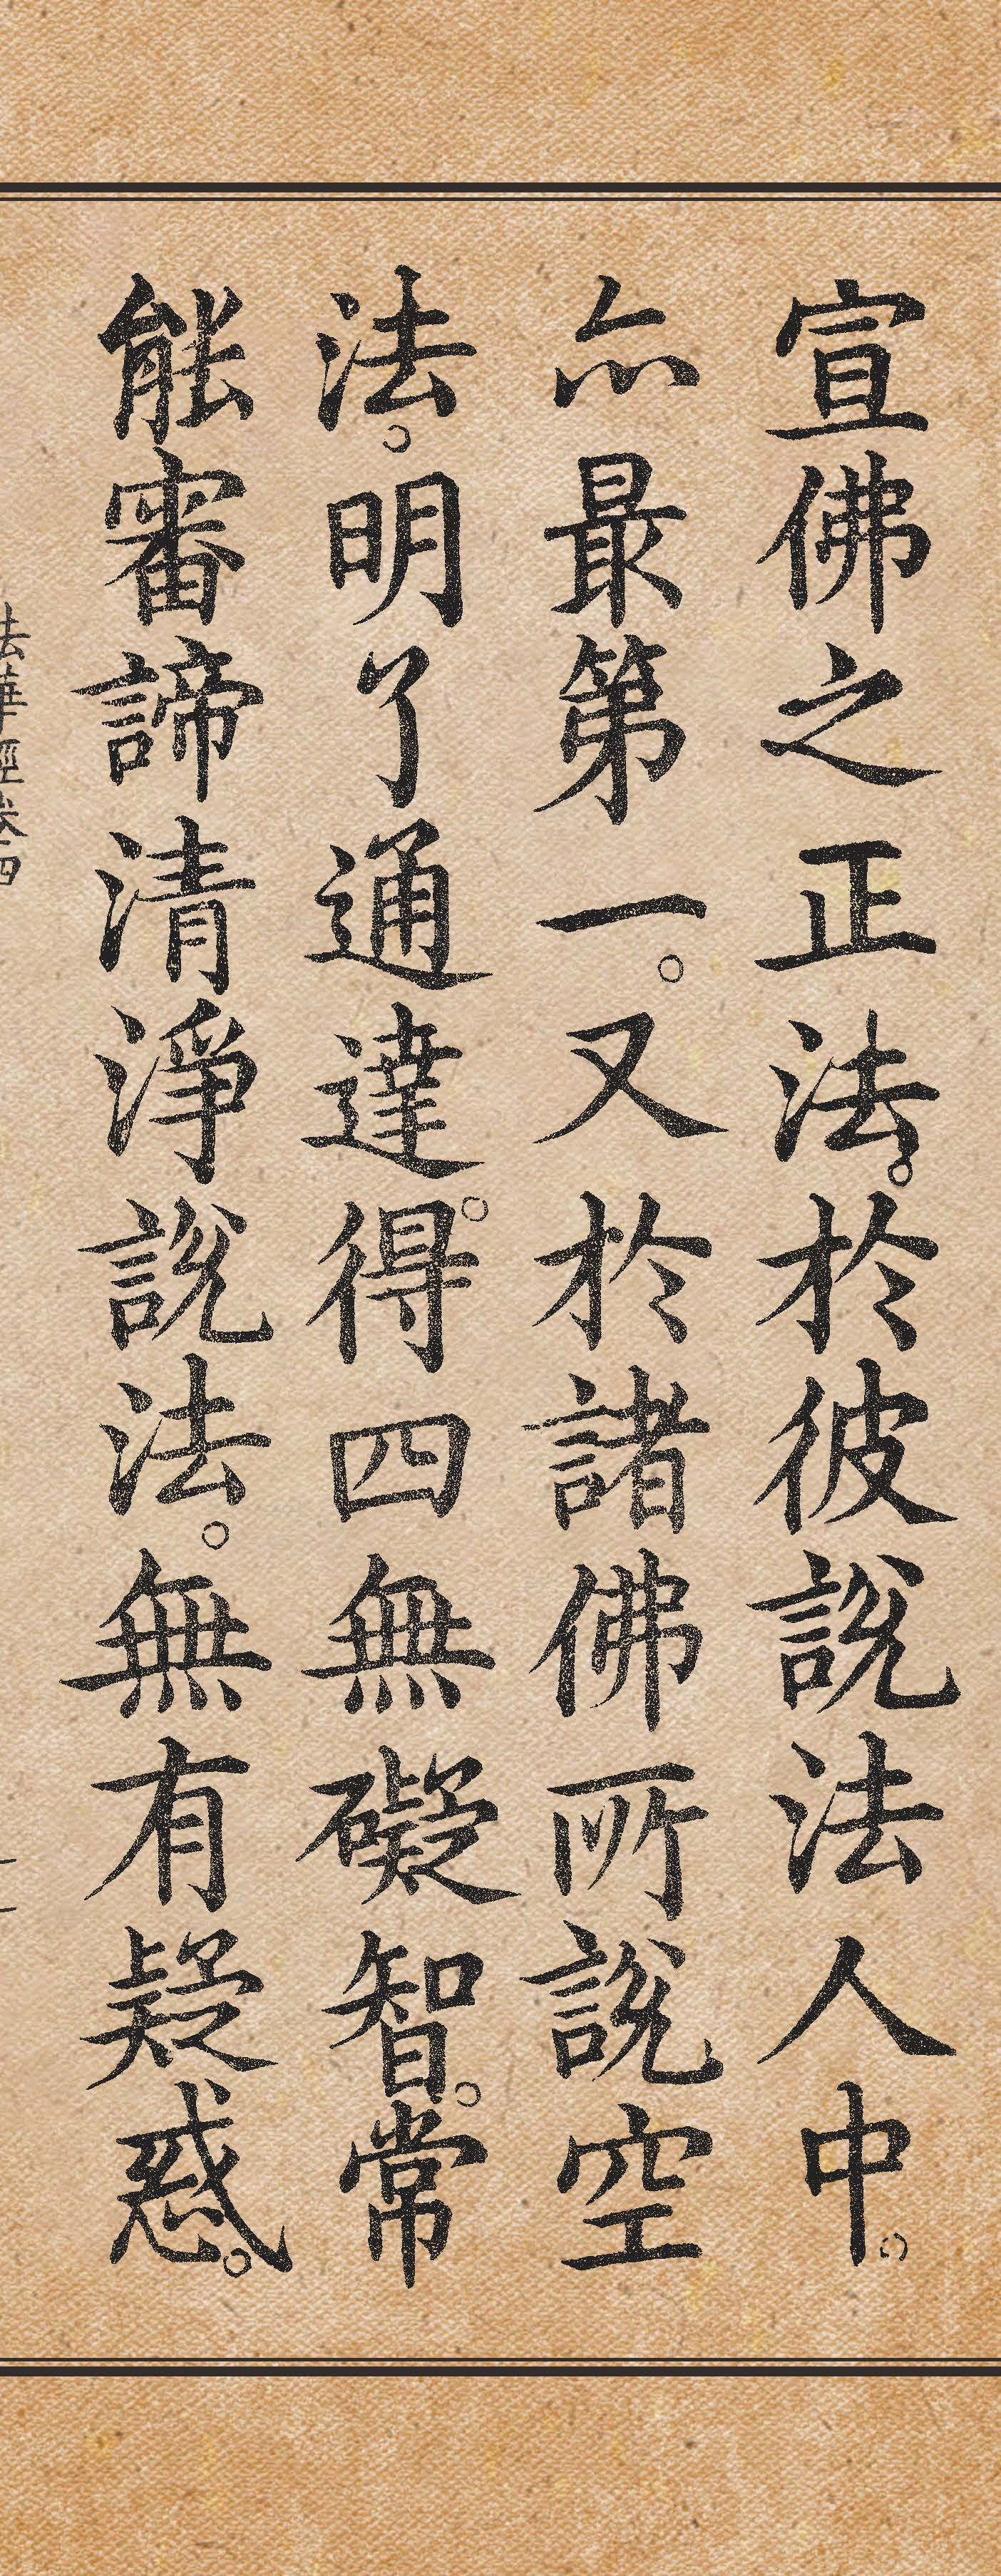 宣佛之正法。於彼說法人中。
亦最第一。又於諸佛所說空
法。明了通達。得四無礙智。常
能審諦清淨說法。無有疑惑。
法華經卷四